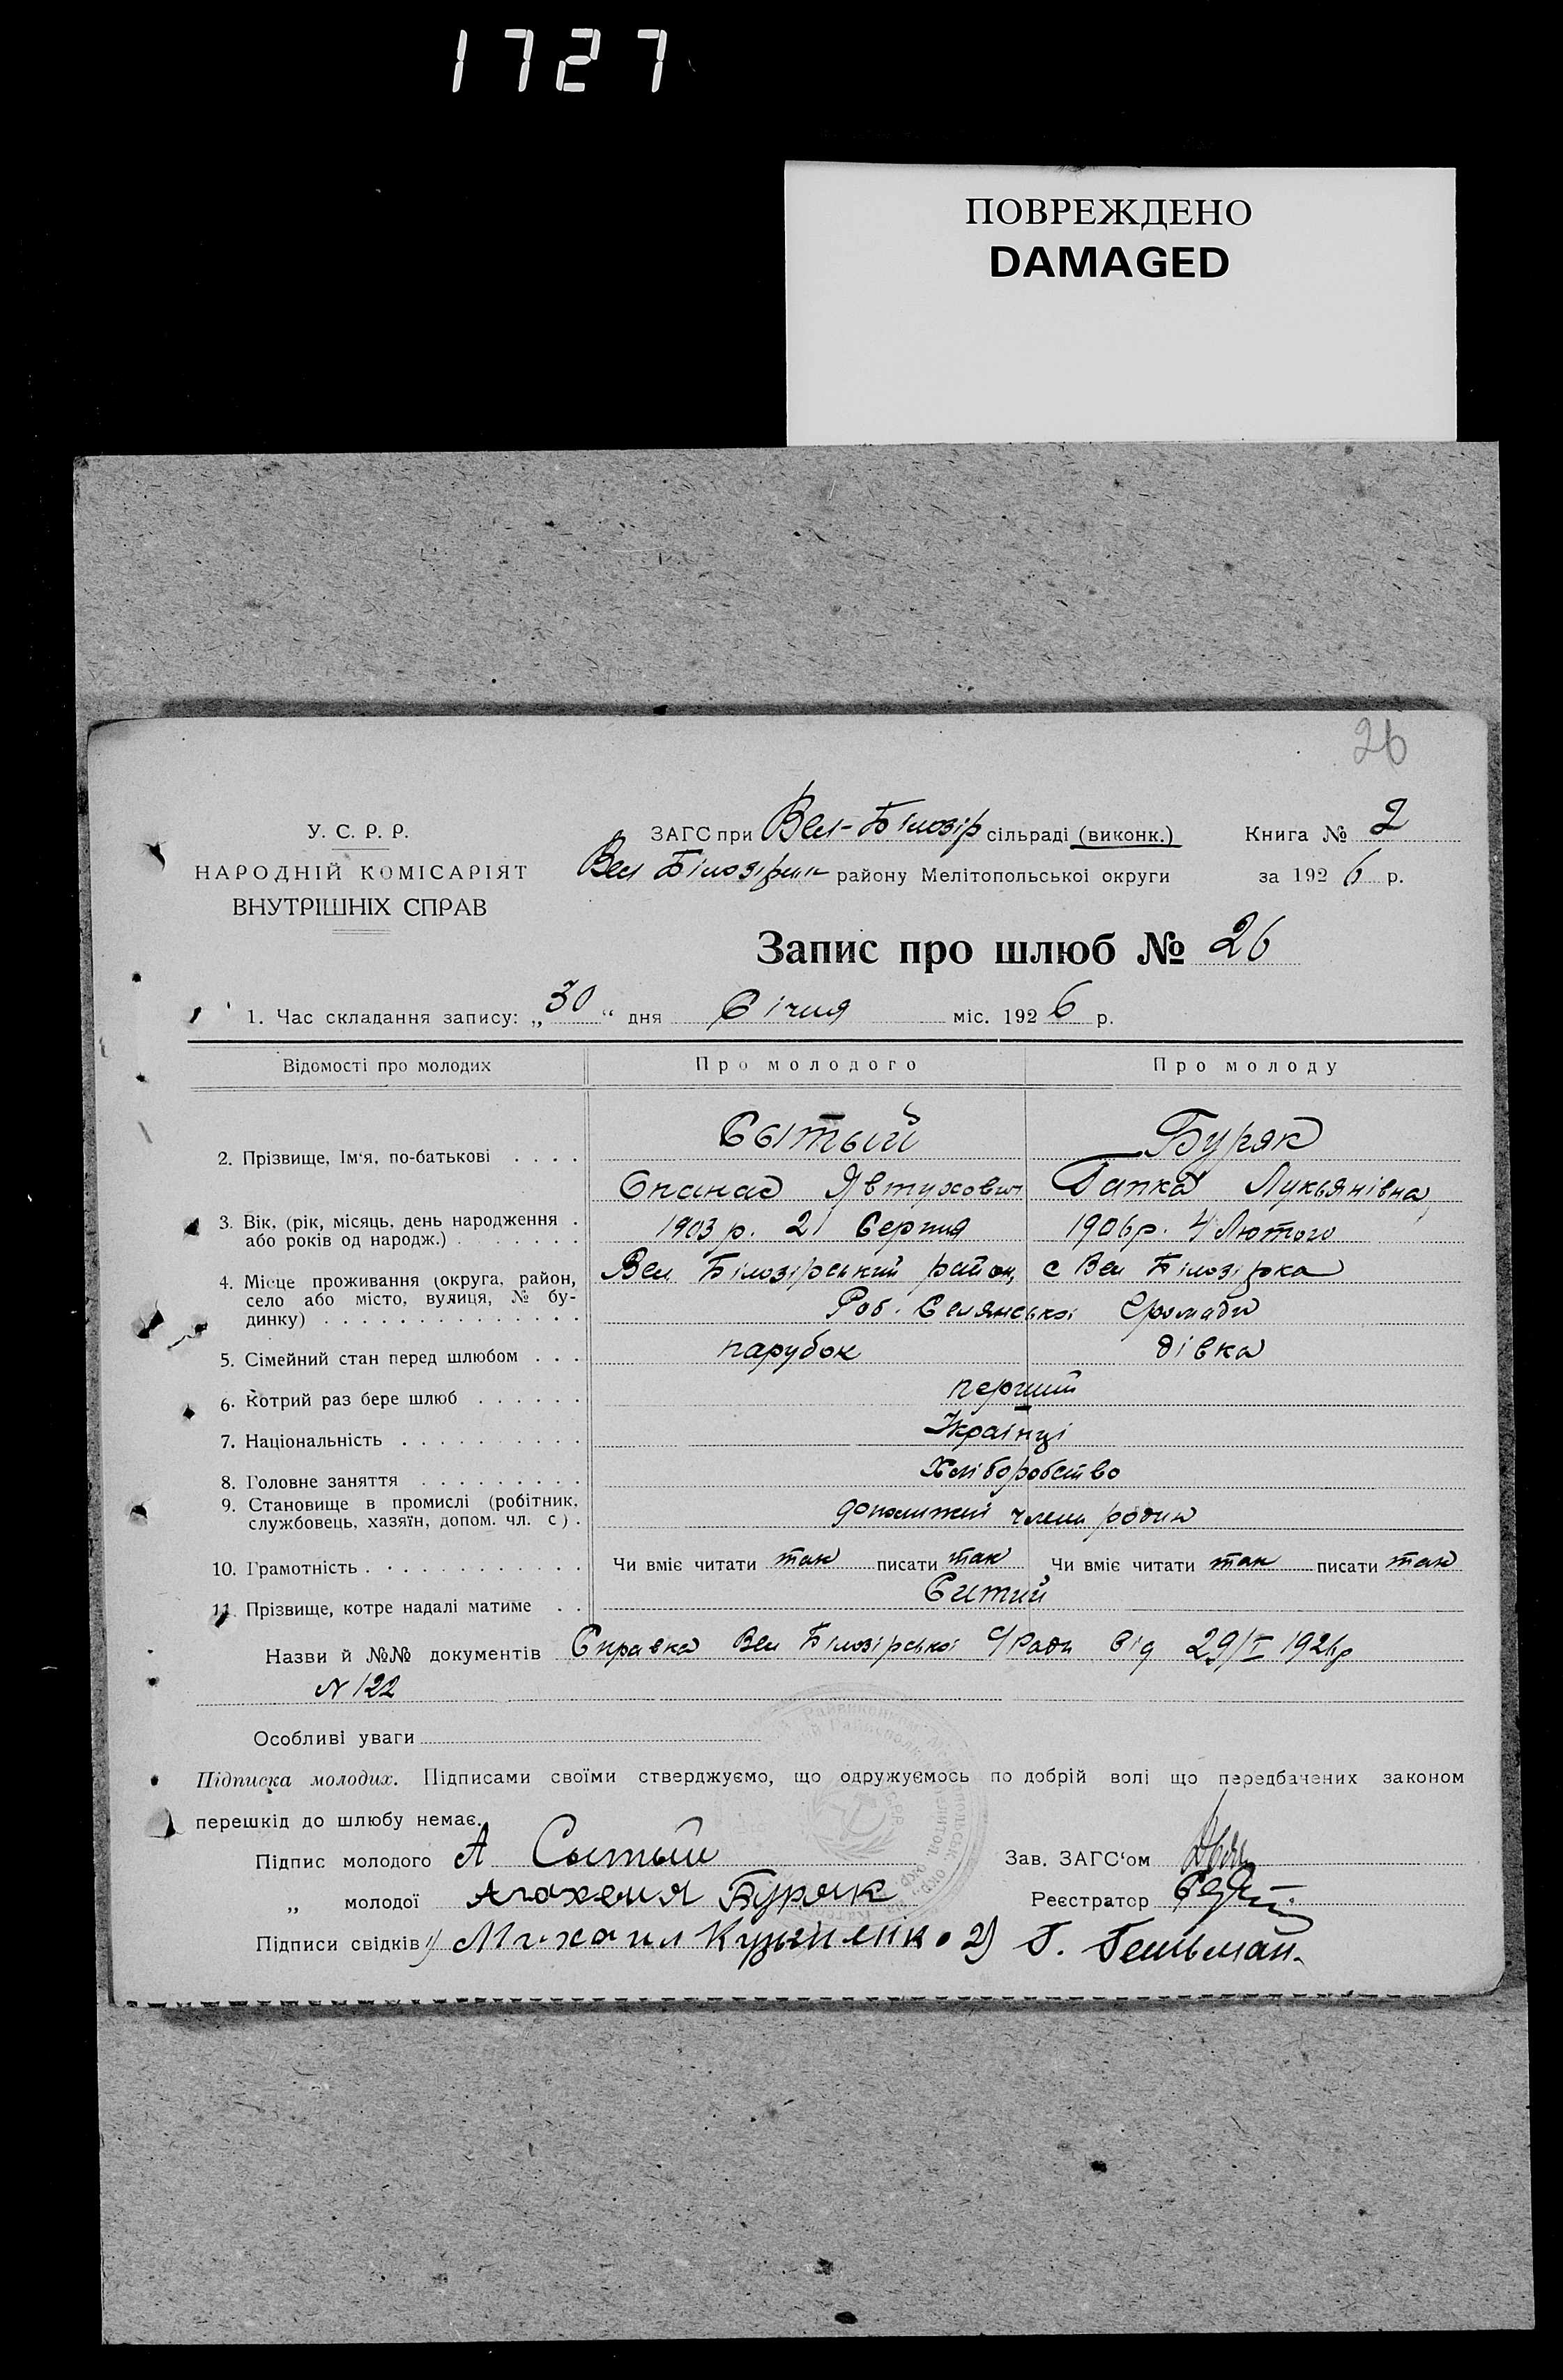 1727
ПОВРЕЖДЕНО
DAMAGED
26
У. С. Р. Р.
НАРОДНІЙ КОМІСАРІЯТ
ВНУТРІШНІХ СПРАВ
ЗАГС при Вел-Білозір сільраді (виконк.) Книга № 2
Вел Білозірськ району Мелітопольської округи за 1926 р.
Запис про шлюб № 26
1. Час складання запису: „30“ дня Січня міс. 1926 р.
Відомості про молодих Про молодого Про молоду
2. Прізвище, Ім'я, по-батькові . . . . Сытый Буряк
Опанас Явтухович Гапка Лукьянівна
3. Вік, (рік, місяць, день народження .
або років од народж.) . . . . . . . 1903 р. 21 Серпня 1906 р. 4 Лютого
4. Місце проживання (округа, район,
село або місто, вулиця, № бу-
динку) . . . . . . . . . . . . . .
Вел Білозірський район, с Вел Білозірка
Роб. Селянської Громади
5. Сімейний стан перед шлюбом . . . парубок дівка
6. Котрий раз бере шлюб . . . . . . перший
7. Національність . . . . . . . . . . Українці
8. Головне заняття . . . . . . . . . Хліборобство
9. Становище в промислі (робітник,
службовець, хазяїн, допом. чл. с) . члени родин
10. Грамотність . . . . . . . . . . . . Чи вміє читати так писати так Чи вміє читати так писати так
11. Прізвище, котре надалі матиме . . Ситий
Назви й №№ документів Справка Вел Білозірської С/Ради від 29/I 1926р
N 122
Особливі уваги
Підписка молодих. Підписами своїми стверджуємо, що одружуємось по добрій волі що передбачених законом
перешкід до шлюбу немає.
Підпис молодого А Сытый Зав. ЗАГС'ом
„ молодої Агахвия Буряк Реєстратор
Підписи свідків 1) Михаил 2) Г. Гельман